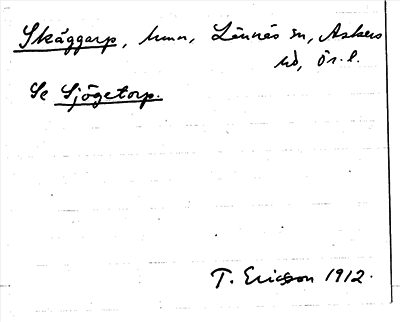 Skäggarp, hmn, Lännäs sn, Askers
hd, Ör. l.
Se Sjögetorp.
T. Ericsson 1912.